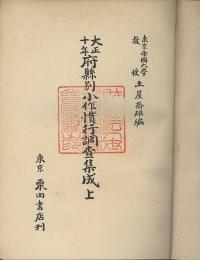 東京帝国大学
教授 土屋喬雄編
大正
十年
府縣別小作慣行調査集成 上
東京 栗田書店刊